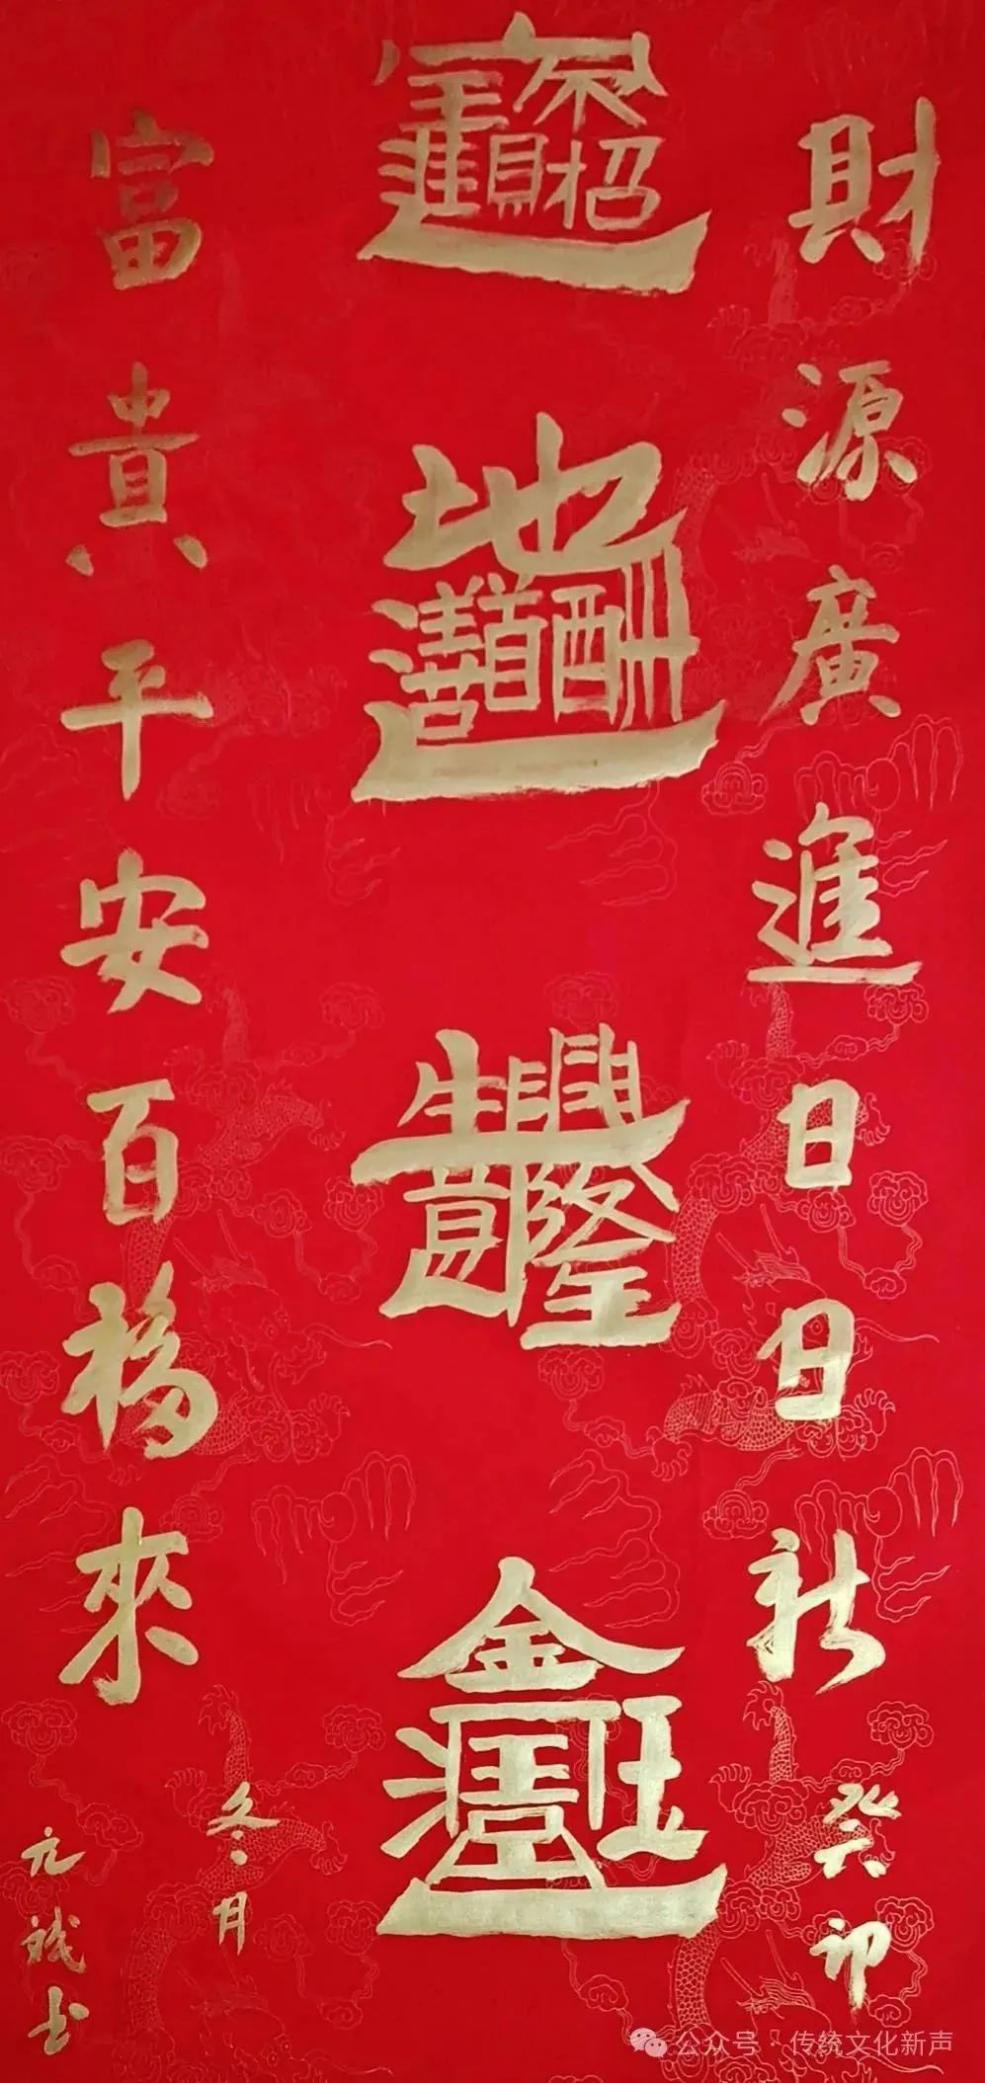 財源廣進日日新
招財進寶
地道酬善
生意興隆
金玉滿堂
富貴平安百福來
癸卯
冬月
元 书
公众号 · 传统文化新声